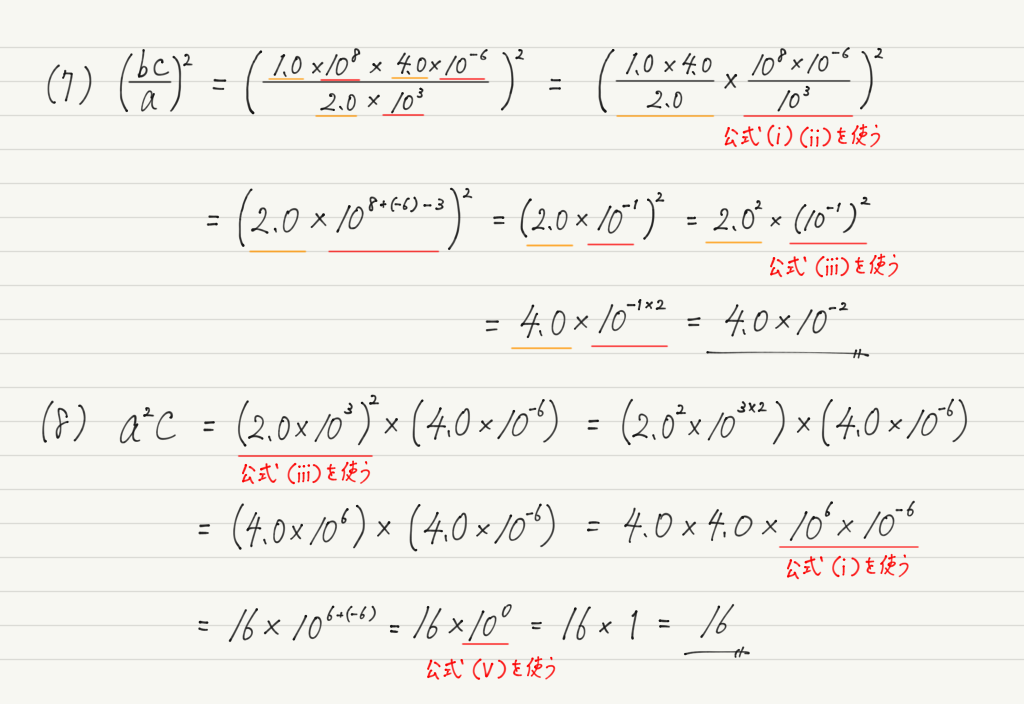 (7) (bc/a)² = ((1.0×10⁸ × 4.0×10⁻⁶)/(2.0 × 10³))² = ((1.0×4.0)/2.0 × (10⁸×10⁻⁶)/10³)²
公式(i)(ii)を使う
= (2.0 × 10⁸⁺⁽⁻⁶⁾⁻³)² = (2.0×10⁻¹)² = 2.0² × (10⁻¹)²
公式(iii)を使う
= 4.0 × 10⁻¹ˣ² = 4.0×10⁻²
(8) a²c = (2.0×10³)² × (4.0×10⁻⁶) = (2.0²×10³ˣ²) × (4.0×10⁻⁶)
公式(iii)を使う
= (4.0×10⁶) × (4.0×10⁻⁶) = 4.0 × 4.0 × 10⁶ × 10⁻⁶
公式(i)を使う
= 16 × 10⁶⁺⁽⁻⁶⁾ = 16 × 10⁰ = 16 × 1 = 16
公式(V)を使う